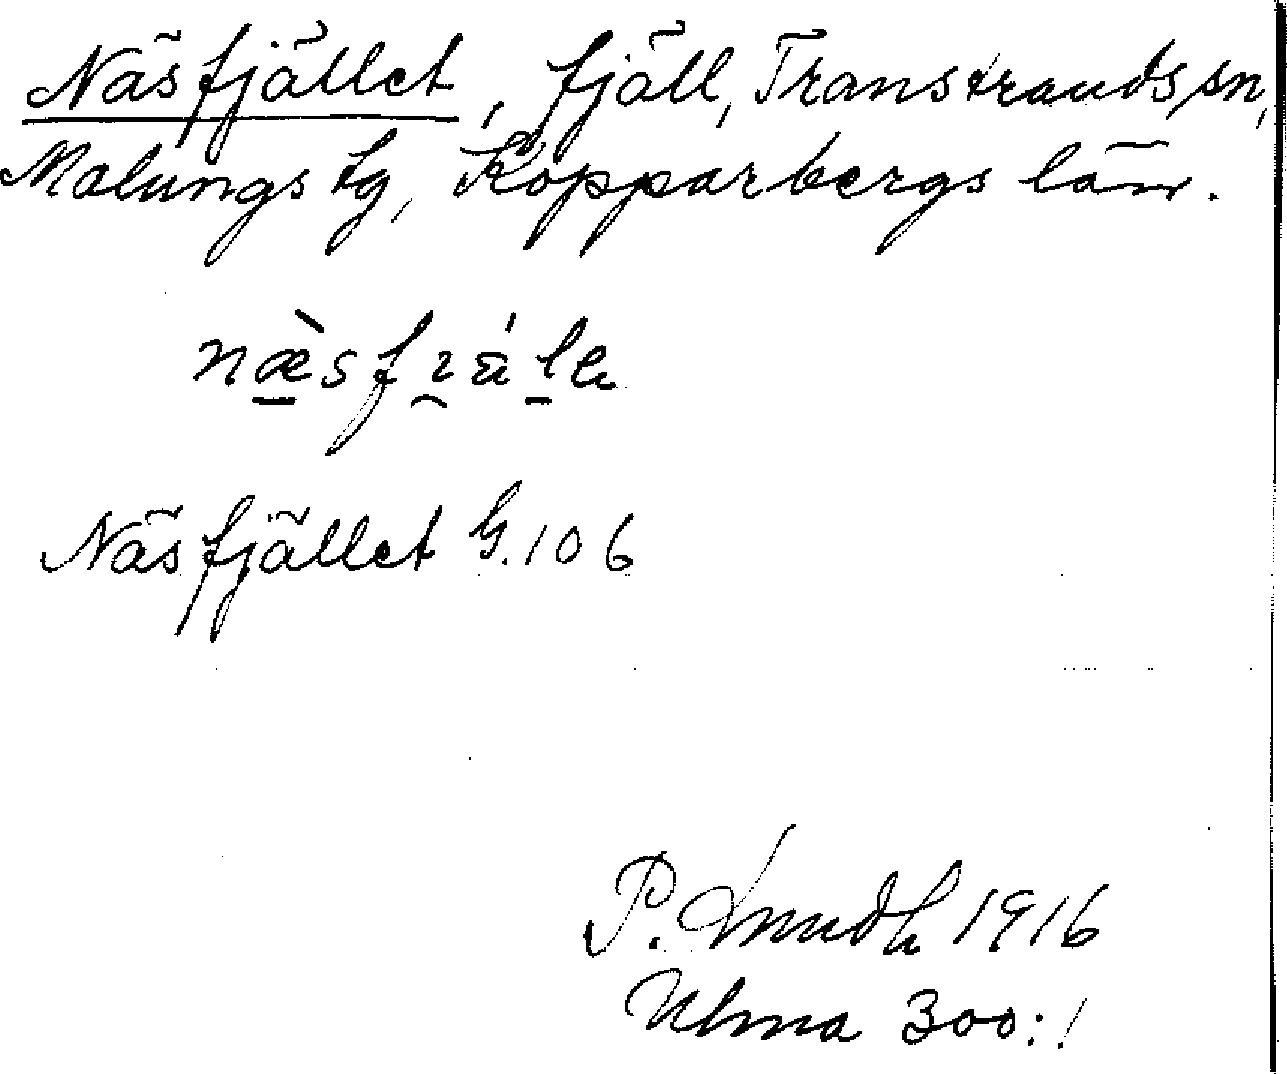 Näsfjället, fjäll, Transtrands sn,
Malungs tg, Kopparbergs län.
Näsfjället G. 106
P. 1916
Ulma 300:1